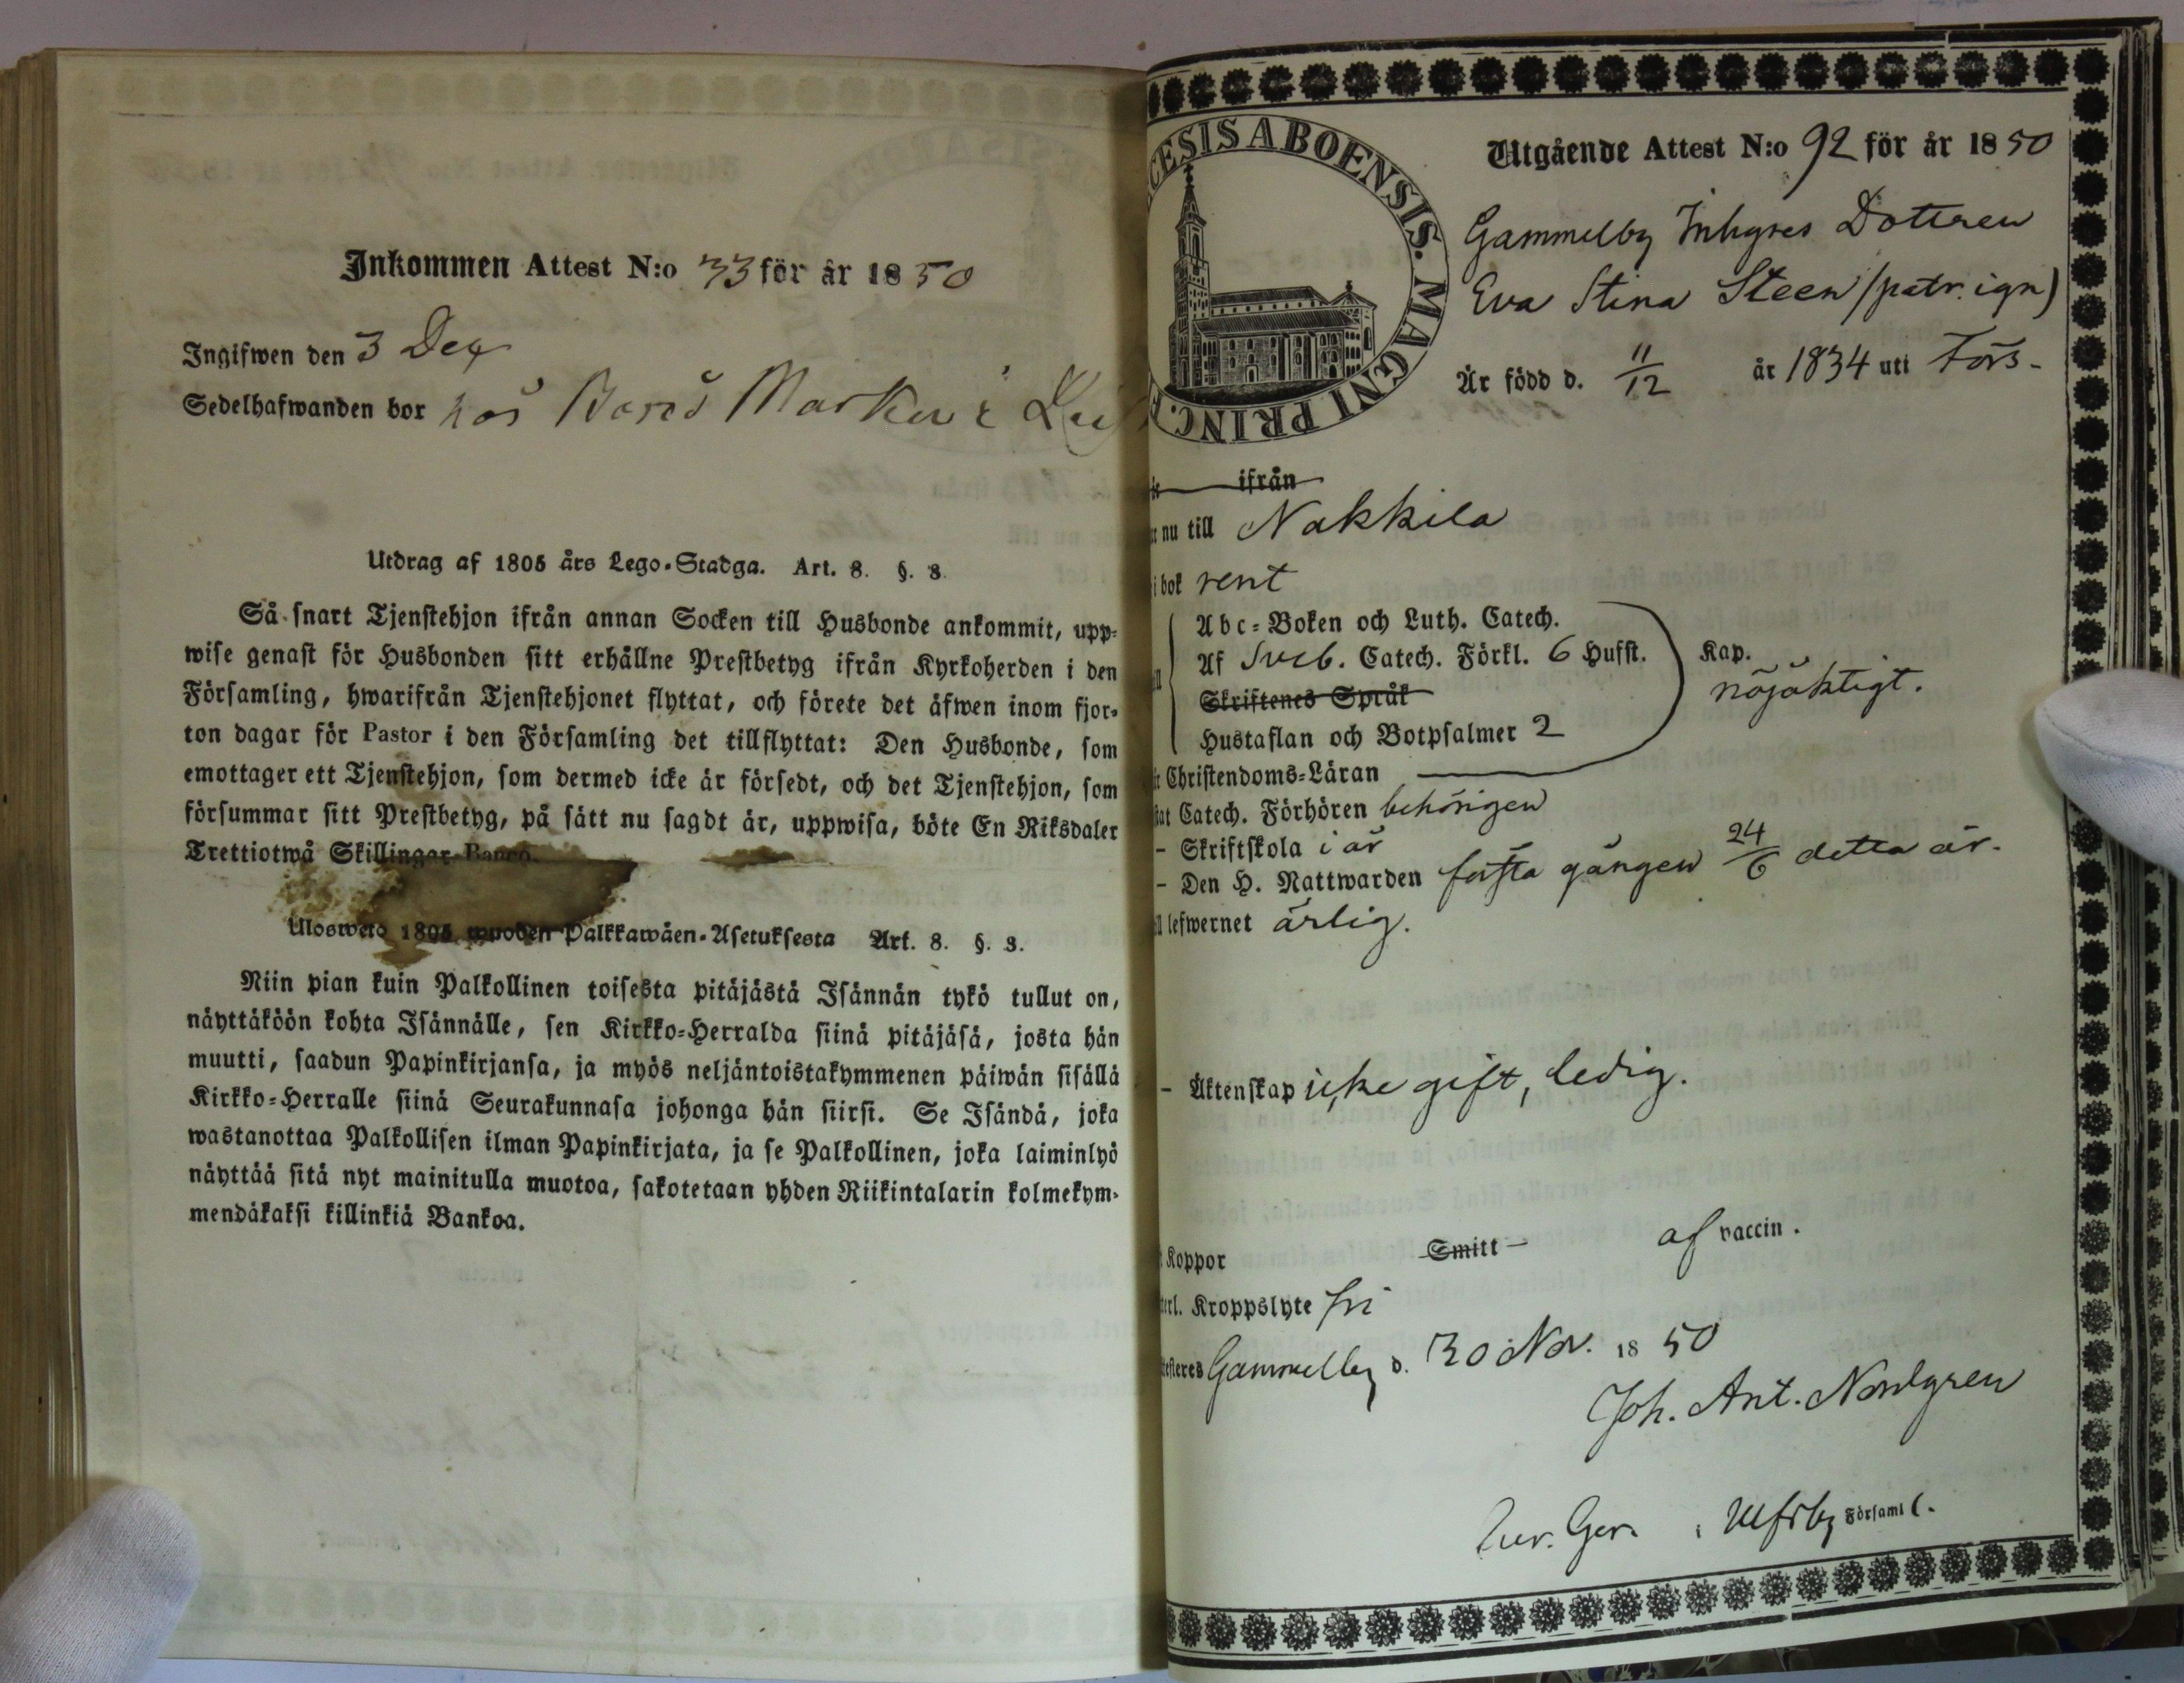 Inkommen Attest N:o 33 för år 1850
Ingifwen den 3 Dec
Sedelhafwanden bor hos i
Utdrag af 1805 års Lego-Stadga. Art. 8. §. 8.
Så snart Tjenstehjon ifrån annan Socken till Husbonde ankommit, upp-
wise genast för Husbonden sitt erhållne Prestbetyg ifrån Kyrkoherden i den
Församling, hwarifrån Tjenstehjonet flyttat, och förete det äfwen inom fjor-
ton dagar för Pastor i den Församling det tillflyttat: Den Husbonde, som
emottager ett Tjenstehjon, som dermed icke är försedt, och det Tjenstehjon, som
försummar sitt Prestbetyg, på sätt nu sagdt är, uppwisa, böte En Riksdaler
Trettiotwå Skillingar Banco.
Ulosweto 1805 wuoden Palkkawäen-Asetuksesta Art. 8. §. 8.
Niin pian kuin Palkollinen toisesta pitäjästä Isännän tykö tullut on,
näyttäköön kohta Isännälle, sen Kirkko-Herralda siinä pitäjäsä, josta hän
muutti, saadun Papinkirjansa, ja myös neljäntoistakymmenen päiwän sisällä
Kirkko-Herralle siinä Seurakunnasa johonga hän siirsi. Se Isändä, joka
wastanottaa Palkollisen ilman Papinkirjata, ja se Palkollinen, joka laiminlyö
näyttää sitä nyt mainitulla muotoa, sakotetaan yhden Riikintalarin kolmekym-
mendäkaksi killinkiä Bankoa.
CESIS ABOENSIS. MAGNI PRINC. F
Utgående Attest N:o 92 för år 1850
Gammelby Inhyses Dottren
Eva Stina Steen (patr. ign)
Är född d. 11/12 år 1834 uti Förs-
ifrån
nu till Nakkila
i bok rent
Abc-Boken och Luth. Catech.
Af Sveb. Catech. Förkl. 6 Hufst. Kap.
Skriftenes Språk nöjaktigt.
Hustaflan och Botpsalmer 2
Christendoms-Läran
Catech. Förhören behörigen
- Skriftskola i år
- Den H. Nattwarden första gången 24/6 detta år.
lefwernet ärlig.
- Äktenskap icke gift, ledig.
Koppor Smitt - af vaccin.
Kroppslyte fri
Gammelby d. 30 Nov. 1850
Joh. Ant. Nordgren
i Ulfsby Församl.